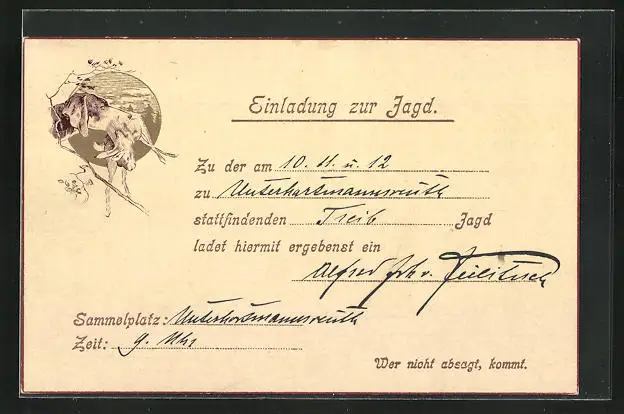 Einladung zur Jagd.
Zu der am 10. 11. u. 12
zu Unterhartmannsreuth
stattfindenden Treib Jagd
ladet hiermit ergebenst ein
Alfred Frh v. Feilitzsch
Sammelplatz: Unterhartmannsreuth
Zeit: 9. Uhr
Wer nicht absagt, kommt.